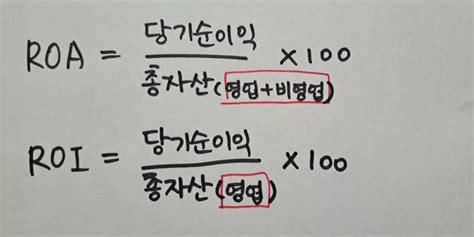 ROA = 당기순이익 / 총자산(영업+비영업) × 100
ROI = 당기순이익 / 총자산(영업) × 100